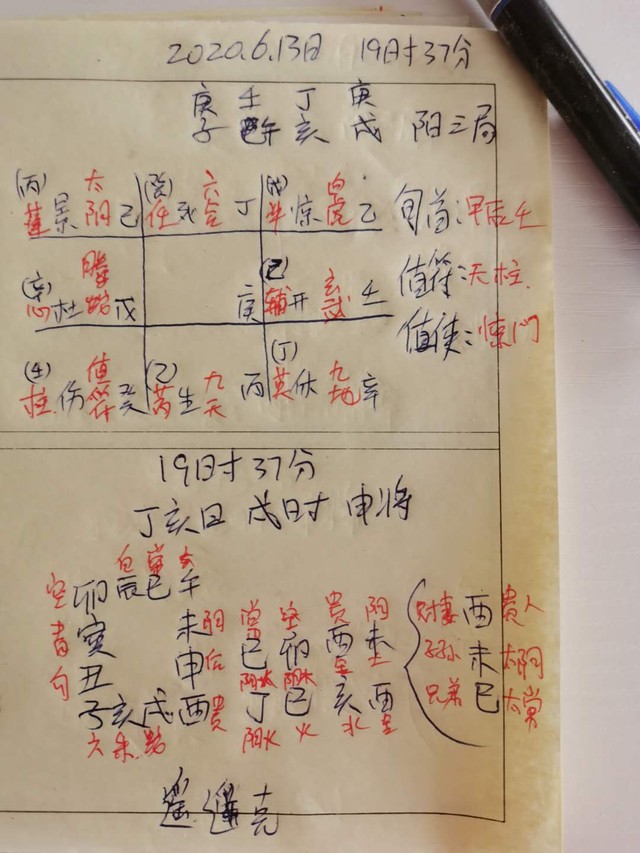 2020.6.13日 19时37分
庚 壬 丁 庚
子 午 亥 戌 阳三局
(丙) 太 (癸) 六 (戊) 白
蓬 景 阳 己 任 死 合 丁 惊 虎 乙
旬首:甲辰壬
(辛) 腾 (己) 玄
心 杜 蛇 戊 庚 辅 开 武 壬
值符:天柱
值使:惊门
(壬) 值 (乙) 九 (丁) 九
柱 伤 符 癸 芮 生 天 丙 英 休 地 辛
19时37分
丁亥日 戌时 申将
白 常
空 卯 辰 巳 午
青 寅 未 阴 常 空 贵 阴 财妻 酉 贵人
勾 丑 申 后 巳 卯 酉 未 子孙 未 太阴
子 亥 戌 酉 贵 丁 巳 亥 酉 兄弟 巳 太常
六 朱 蛇 阳火 火 水 金
遥 克